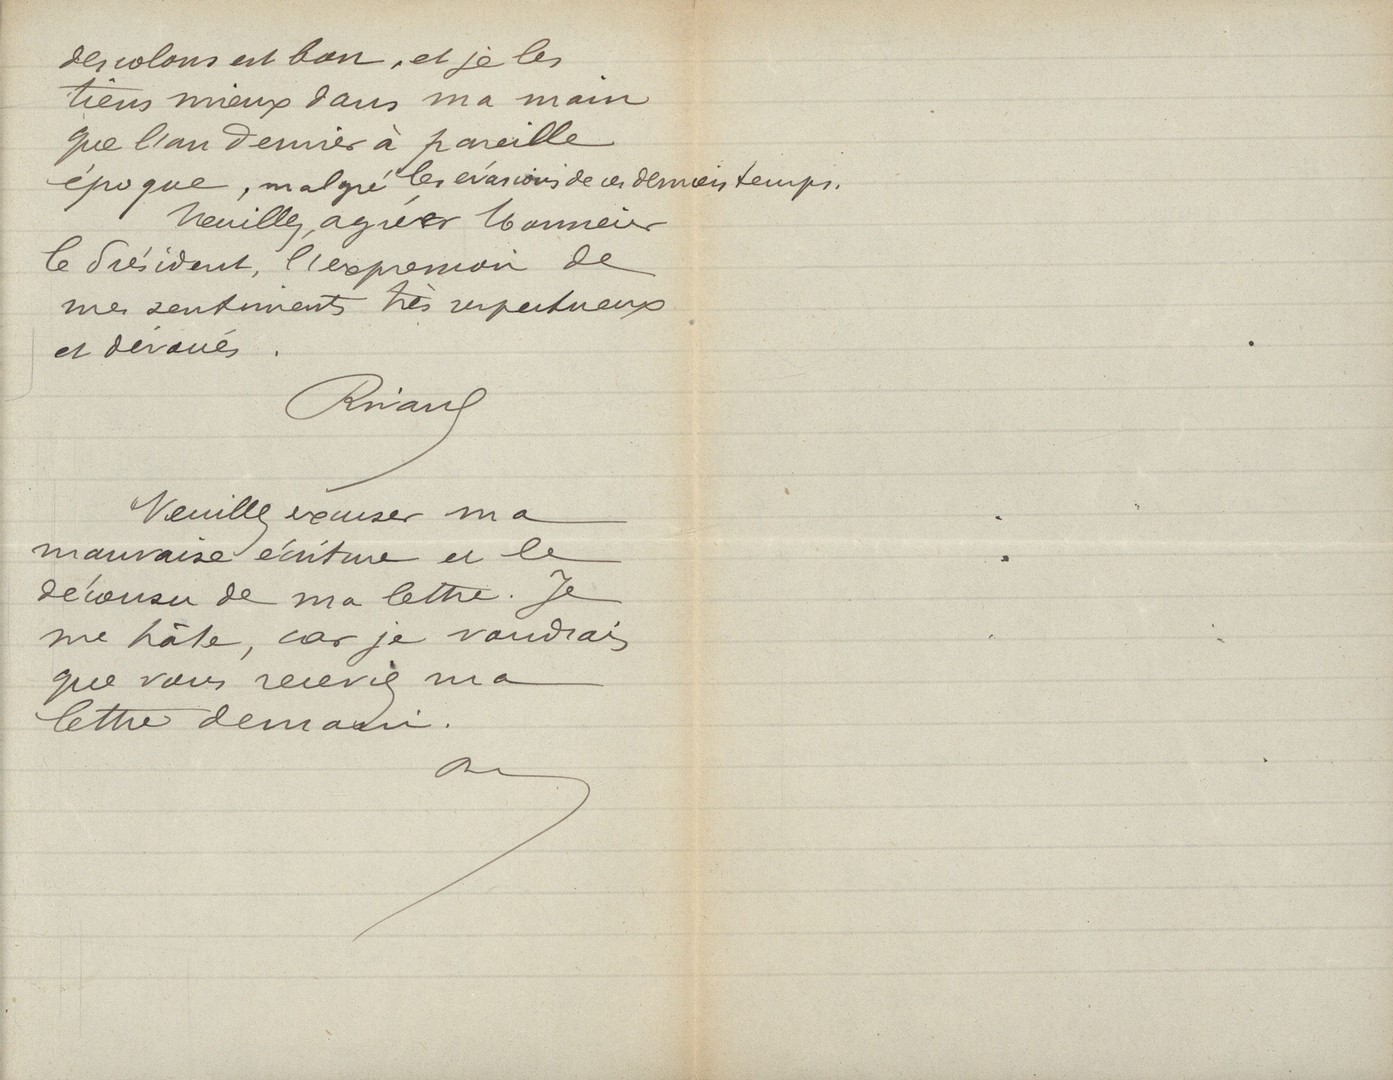 des colons est bon, et je les
tiens mieux dans ma main
que l'an dernier à pareille
époque, malgré les évasions de ces derniers temps.
Veuillez, agréer Monsieur
le Président, l'expression de
mes sentiments très respectueux
et dévoués.
Veuillez excuser ma
mauvaise écriture et le
décousu de ma lettre. Je
me hâte, car je voudrais
que vous receviez ma
lettre demain.